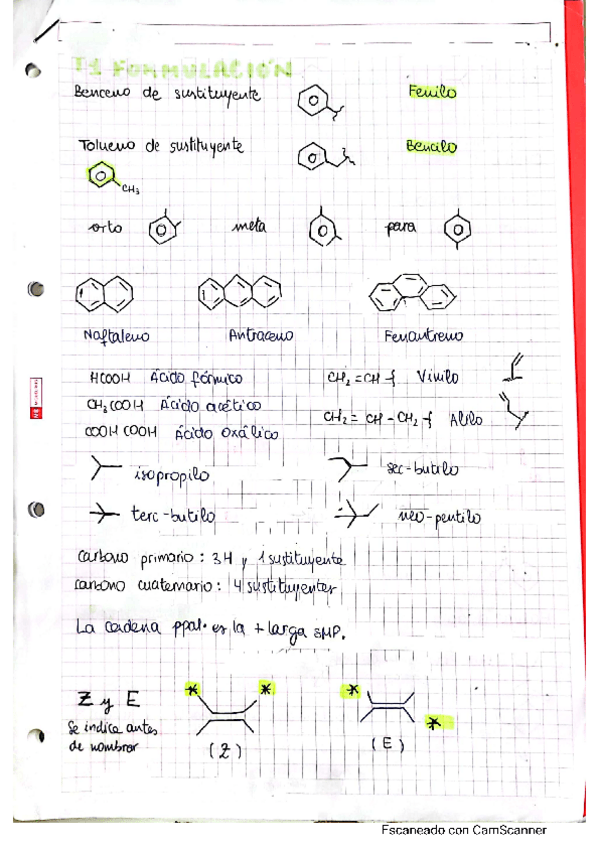 T1 FORMULACIÓN
Benceno de sustituyente Fenilo
Tolueno de sustituyente Bencilo
CH3
orto meta para
Naftaleno Antraceno Fenantreno
HCOOH Ácido fórmico CH2=CH-{ Vinilo
CH3COOH Ácido acético
CH2=CH-CH2-{ Alilo
COOH COOH Ácido Oxálico
isopropilo sec-butilo
terc-butilo neo-pentilo
Carbono primario: 3H y 1 sustituyente
Carbono cuaternario: 4 sustituyentes
La cadena ppal. es la + larga SMP.
Z y E
Se indica antes
de nombrar
(Z) (E)
Escaneado con CamScanner